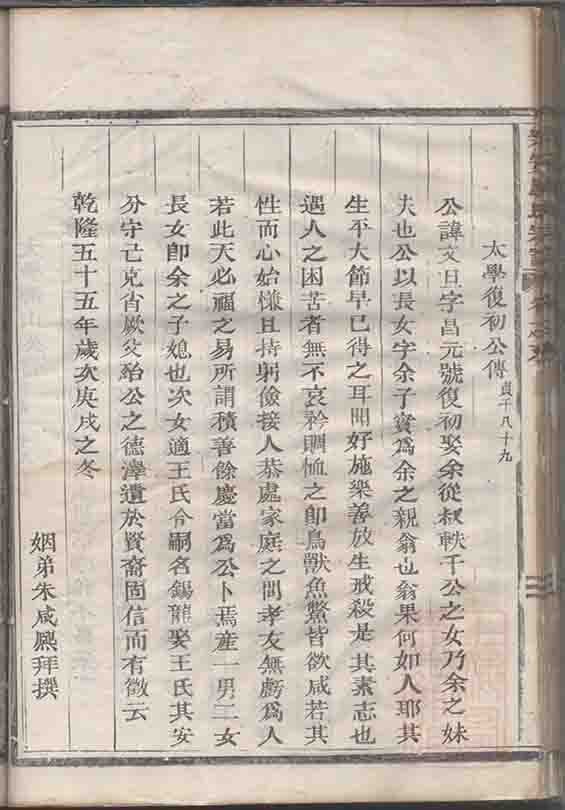 太學復初公傳 貞千八十九
公諱文旦字昌元號復初娶余從叔軼千公之女乃余之妹
夫也公以長女字余子實爲余之親翁也翁果何如人耶其
生平大節早已得之耳聞好施樂善放生戒殺是其素志也
遇人之困苦者無不哀矜賙恤之卽鳥獸魚鱉皆欲咸若其
性而心始慊且持躬儉接人恭處家庭之間孝友無虧爲人
若此天必福之易所謂積善餘慶當爲公卜焉產一男二女
長女卽余之子媳也次女適王氏令嗣名錫龍娶王氏其安
分守己克肖厥父殆公之德澤遺於賢裔固信而有徵云
乾隆五十五年歲次庚戌之冬
姻弟朱咸熈拜撰